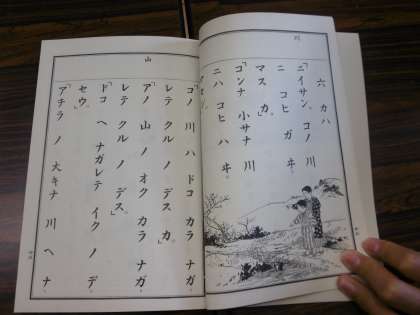 川
六 カハ
「ニイサン、コノ 川
ニ コヒ ガ ヰ
マス カ。」
「コンナ 小サナ 川
ニハ コヒハ ヰ
マセン。
山
コノ 川 ハ ドコ カラ ナガ
レテ クル ノ デス カ。」
「アノ 山 ノ オク カラ ナガ
レテ クル ノ デス。」
「ドコ ヘ ナガレテ イク ノ デ
セウ。」
「アチラ ノ 大キナ 川 ヘ ナ